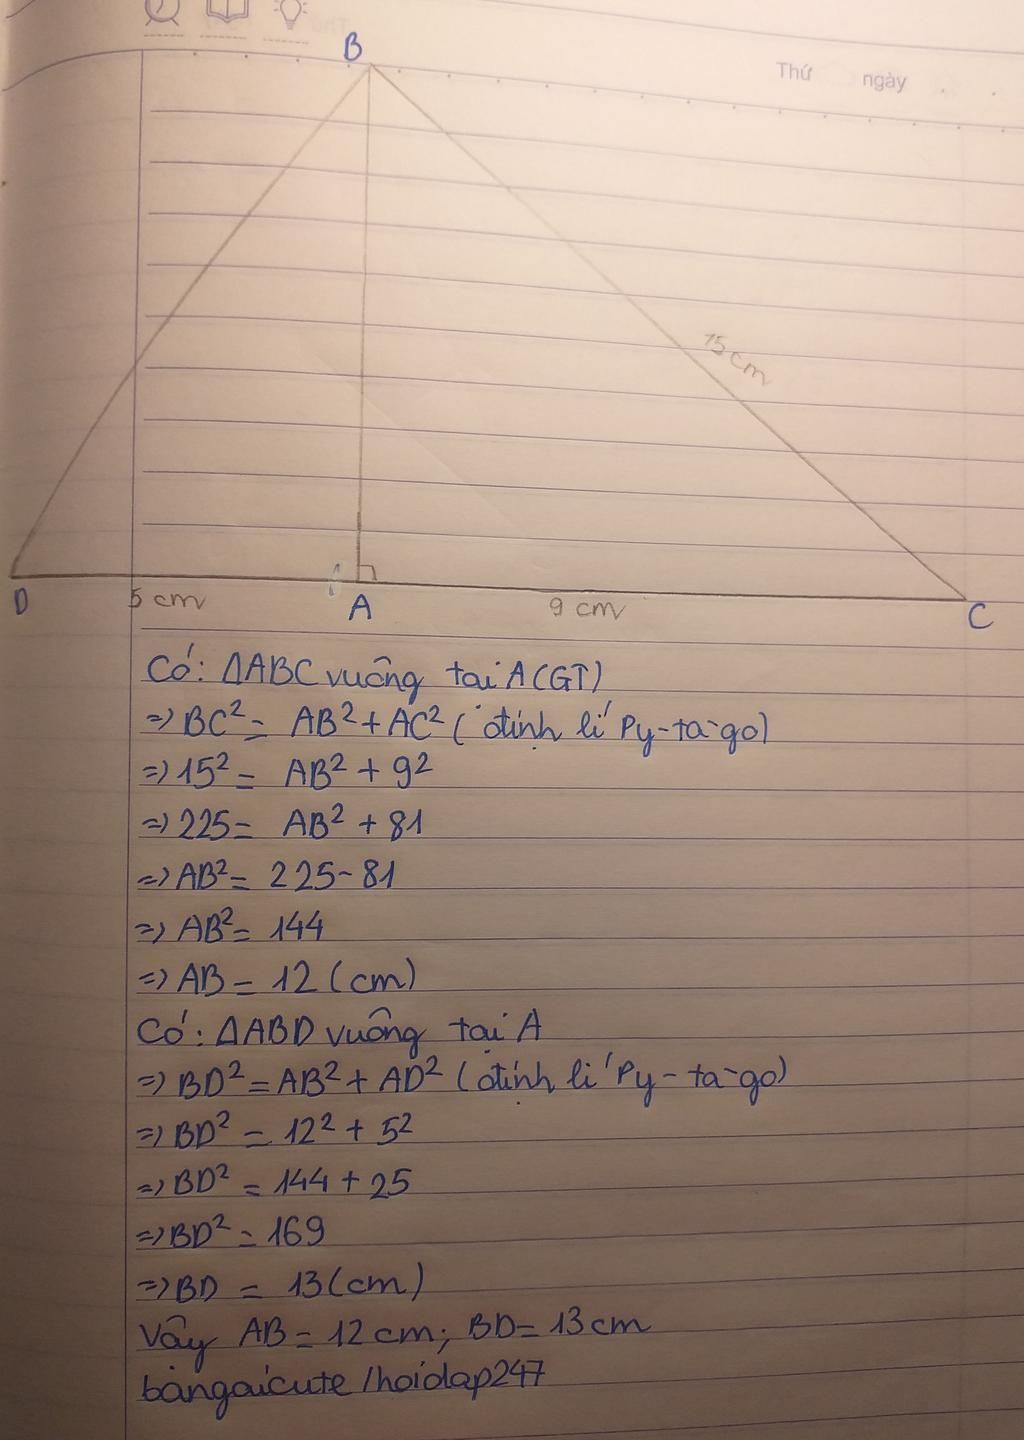 Thứ ngày
B
15 cm
D 5 cm A 9 cm C
Có: ΔABC vuông tại A (GT)
=> BC² = AB² + AC² (định lí Py-ta-go)
=> 15² = AB² + 9²
=> 225 = AB² + 81
=> AB² = 225 - 81
=> AB² = 144
=> AB = 12 (cm)
Có: ΔABD vuông tại A
=> BD² = AB² + AD² (định lí Py-ta-go)
=> BD² = 12² + 5²
=> BD² = 144 + 25
=> BD² = 169
=> BD = 13 (cm)
Vậy AB = 12 cm; BD = 13 cm
bangaicute /hoidap247